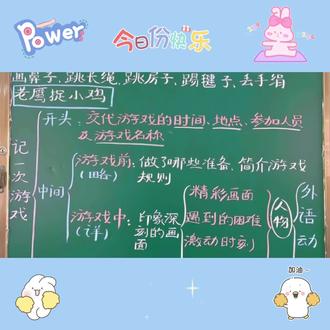 Power
今日份快乐
画鼻子、跳长绳、跳房子、踢毽子、丢手绢
老鹰捉小鸡
记一次游戏
开头:交代游戏的时间、地点、参加人员
及游戏名称
中间
游戏前:做了哪些准备、简介游戏
(略)
规则
游戏中:印象深
(详)
刻的画
面
精彩画面
遇到的困难
激动时刻
人物
外
语
动
加油~